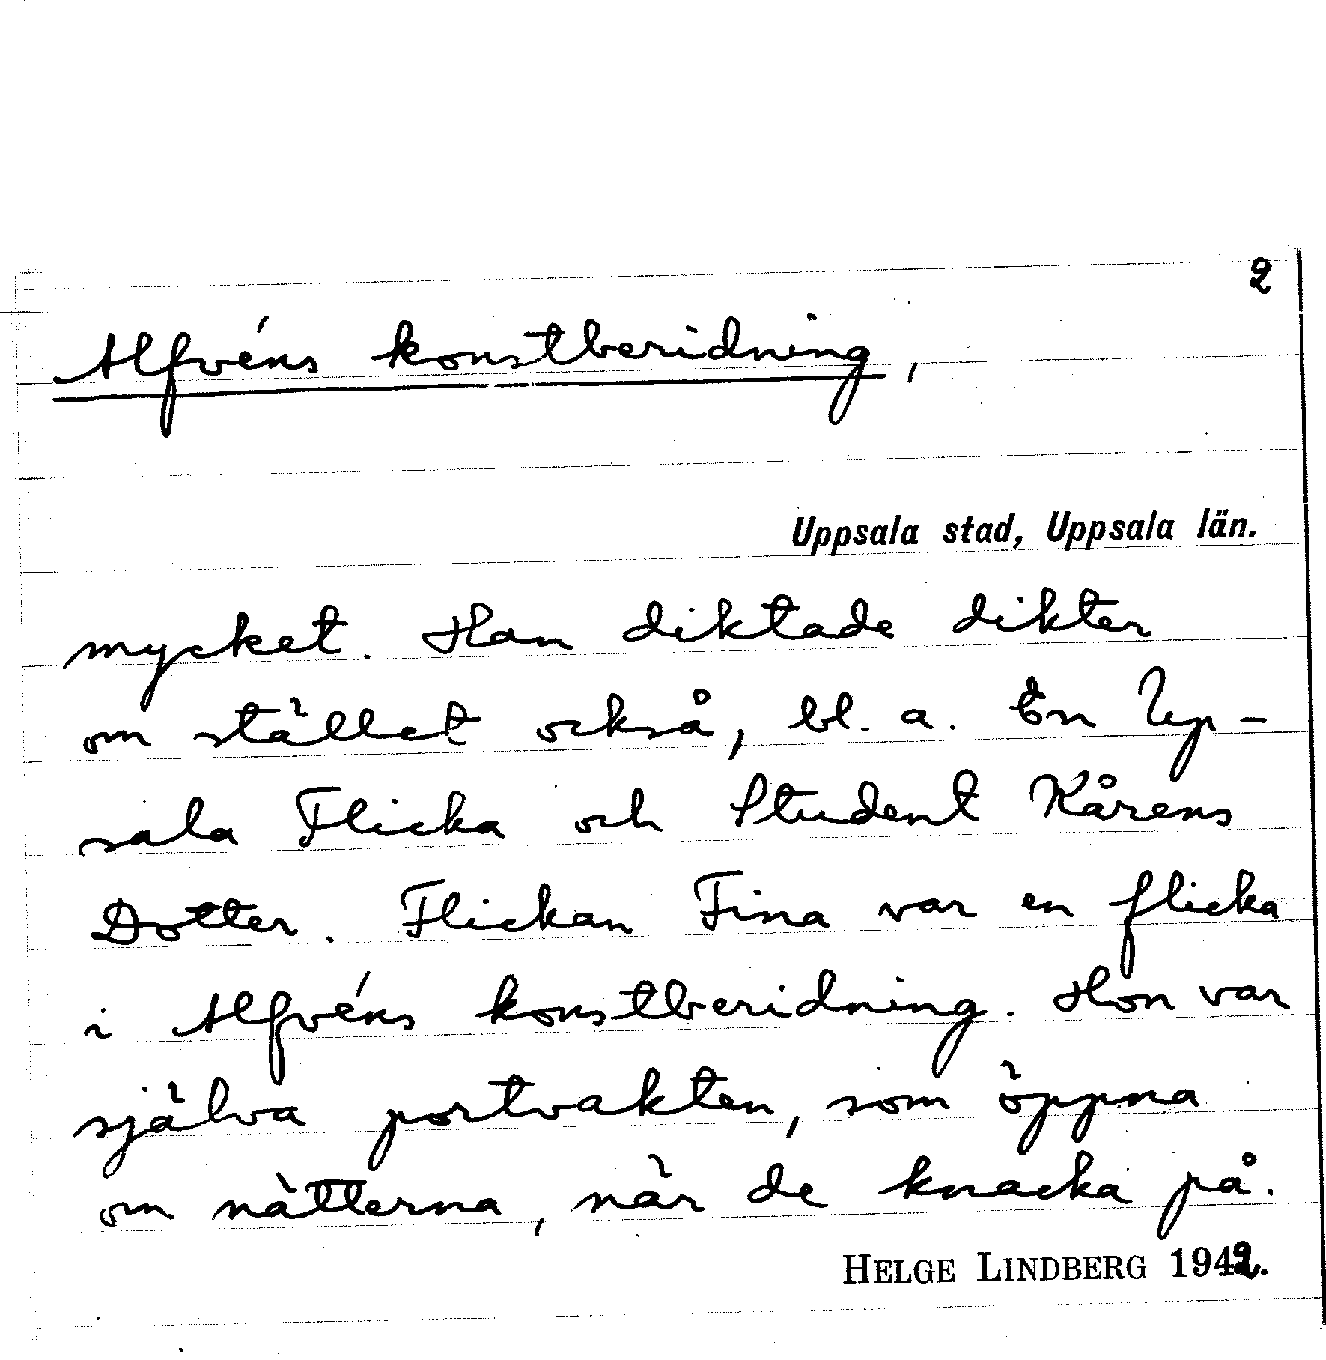 2
Alfvéns konstberidning,
Uppsala stad, Uppsala län.
mycket. Han diktade dikter
om stället också, bl. a. En Up-
sala Flicka och Student Kårens
Dotter. Flickan Fina var en flicka
i Alfvéns konstberidning. Hon var
själva portvakten, som öppna
om nätterna, när de knacka på.
HELGE LINDBERG 1942.